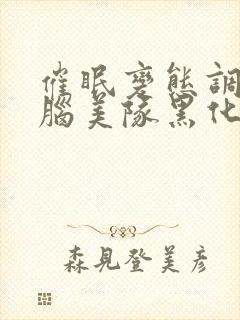 催眠變態調
腦美隊黑化
森見登美彥